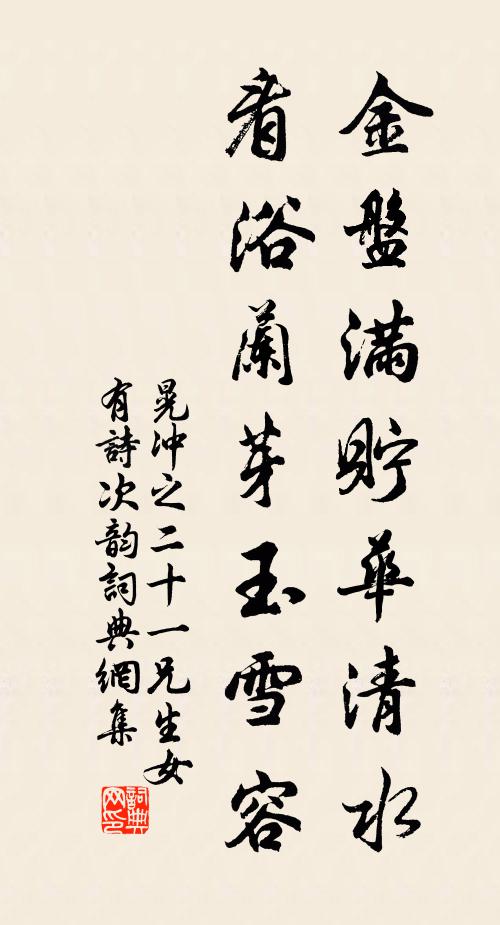 金盤滿貯華清水
看浴蘭芽玉雪容
晁沖之二十一兄生女
有詩次韵詞典網集
詞典
网印